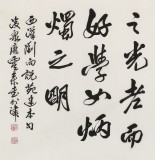 之光老而
好學如炳
燭之明
西漢劉向說苑建本句